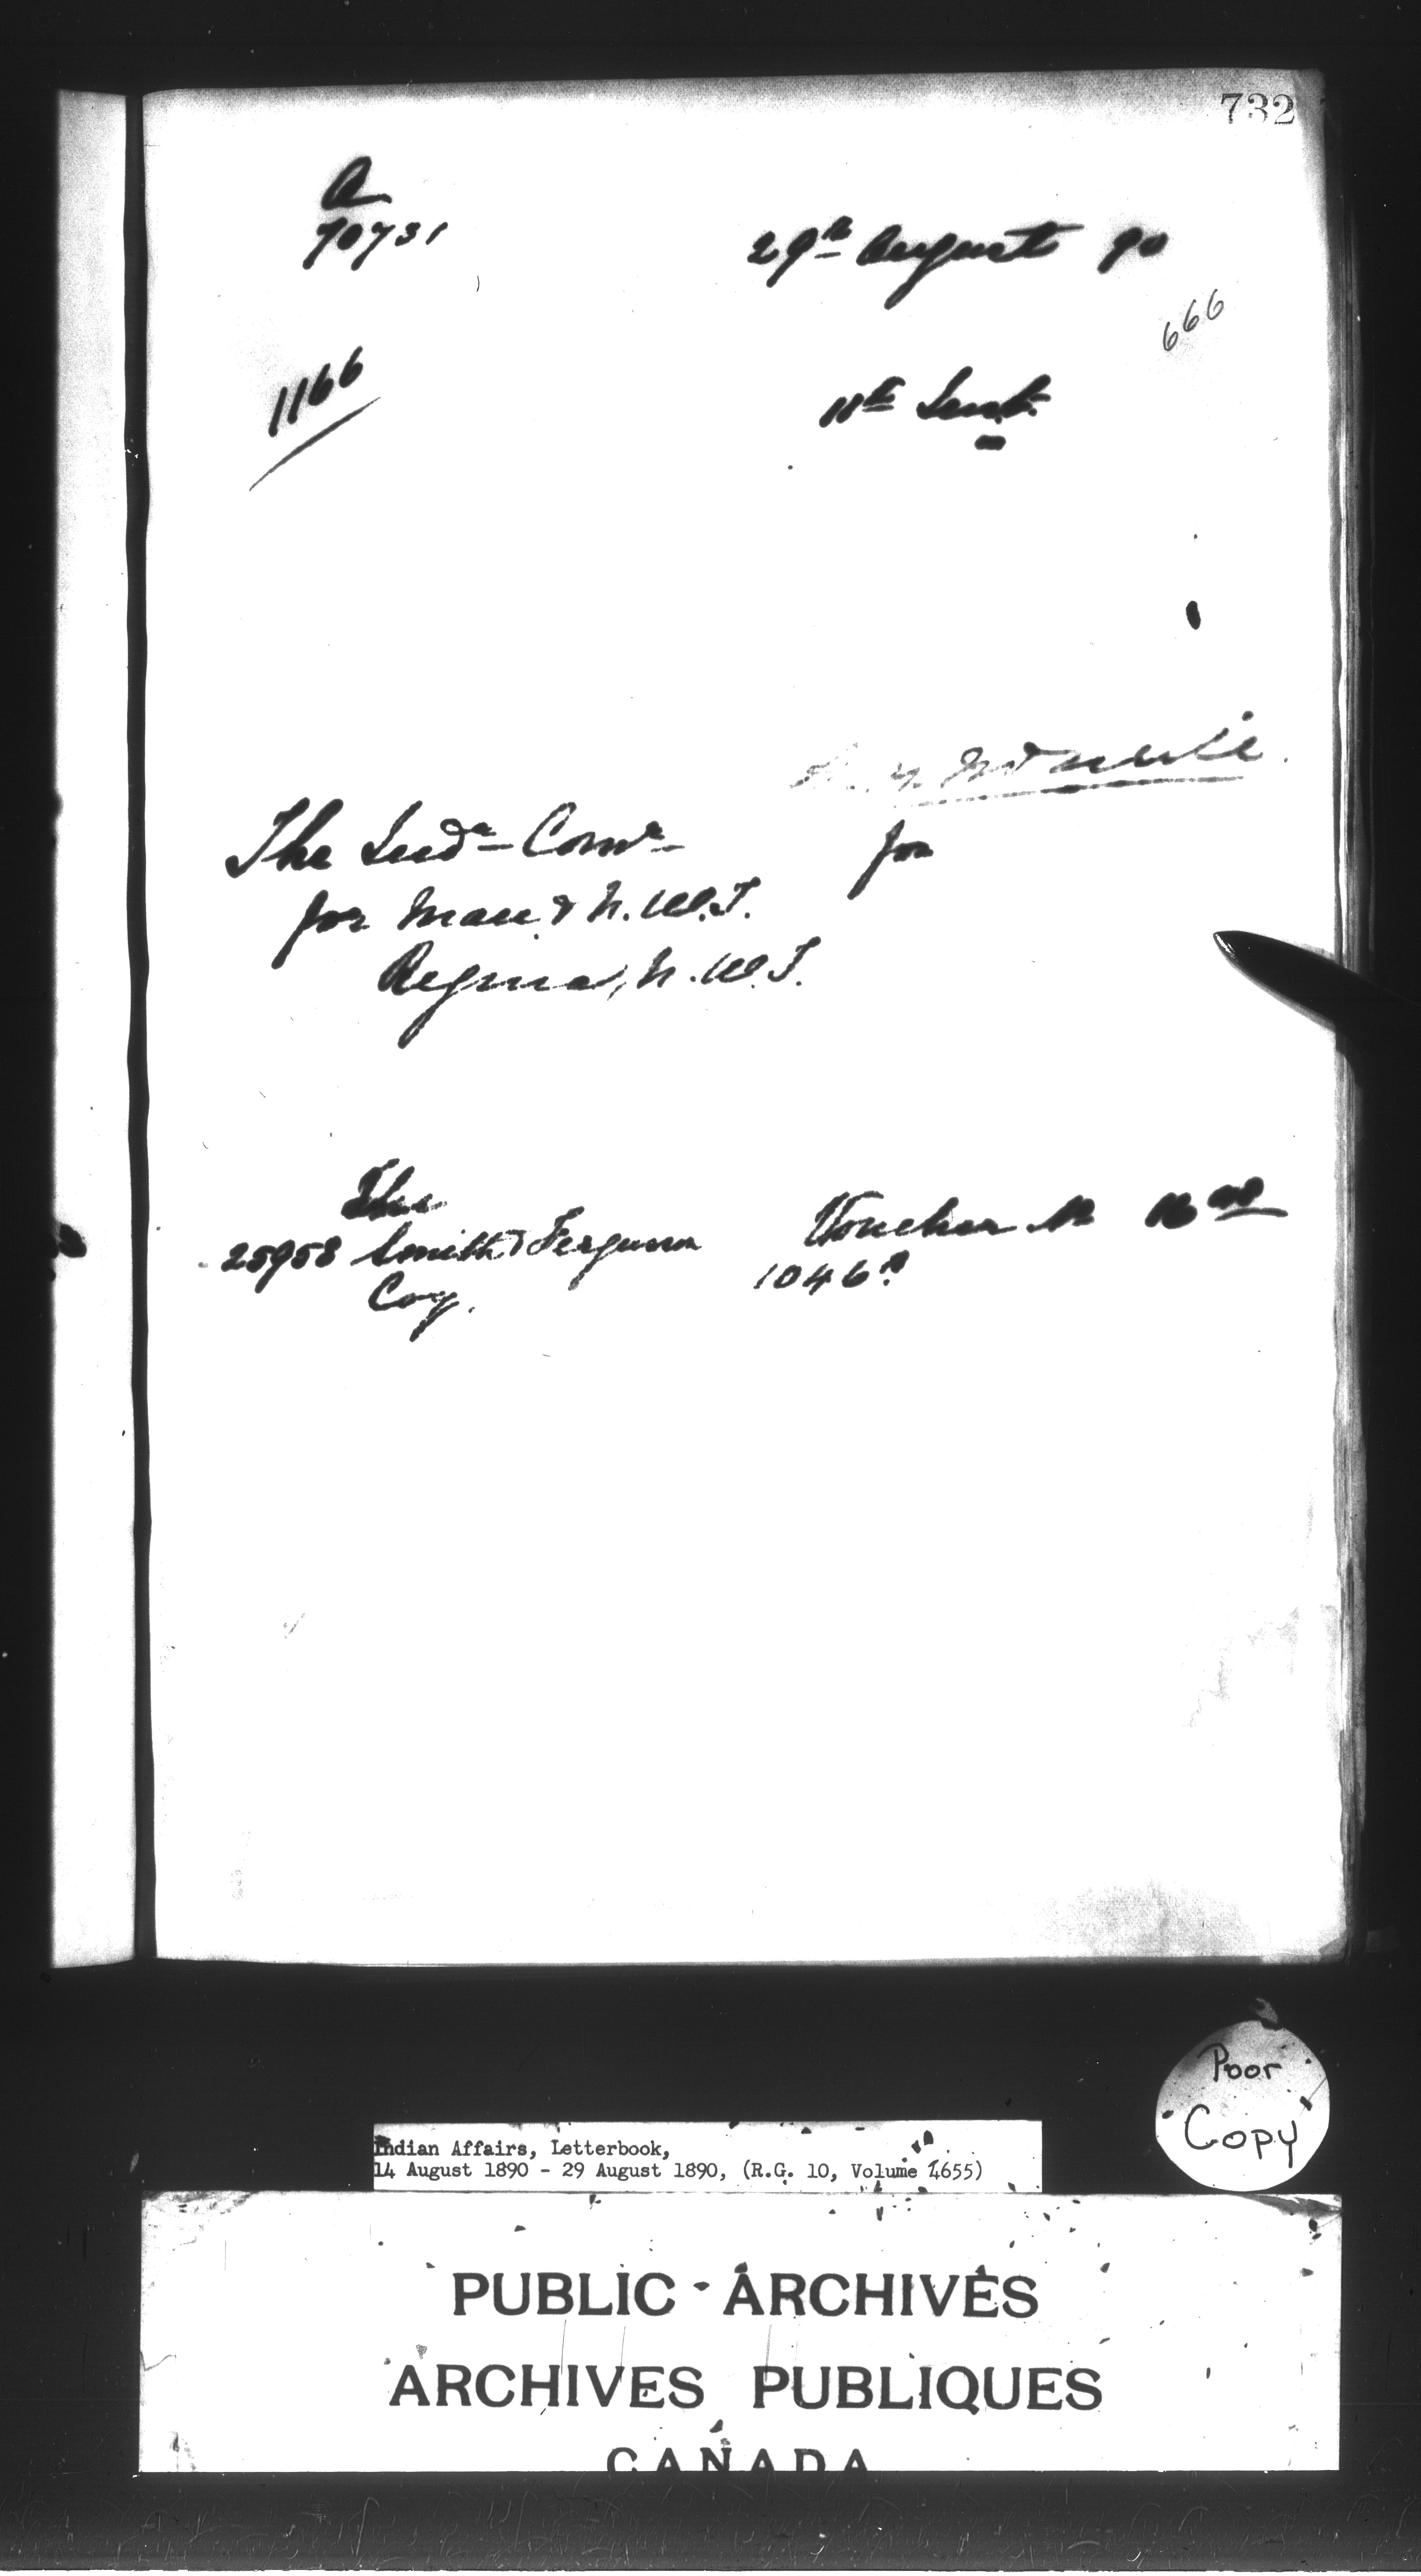 732
A
70731
29th August 90
666
1166
11th
The Indn Comr
for
for Man. & N.W.T.
Regina, N.W.T.
The
25958 Smith & Ferguson
Coy.
Voucher
1046
Poor
Copy
Indian Affairs, Letterbook,
14 August 1890 - 29 August 1890, (R.G. 10, Volume 4655)
PUBLIC ARCHIVES
ARCHIVES PUBLIQUES
CANADA